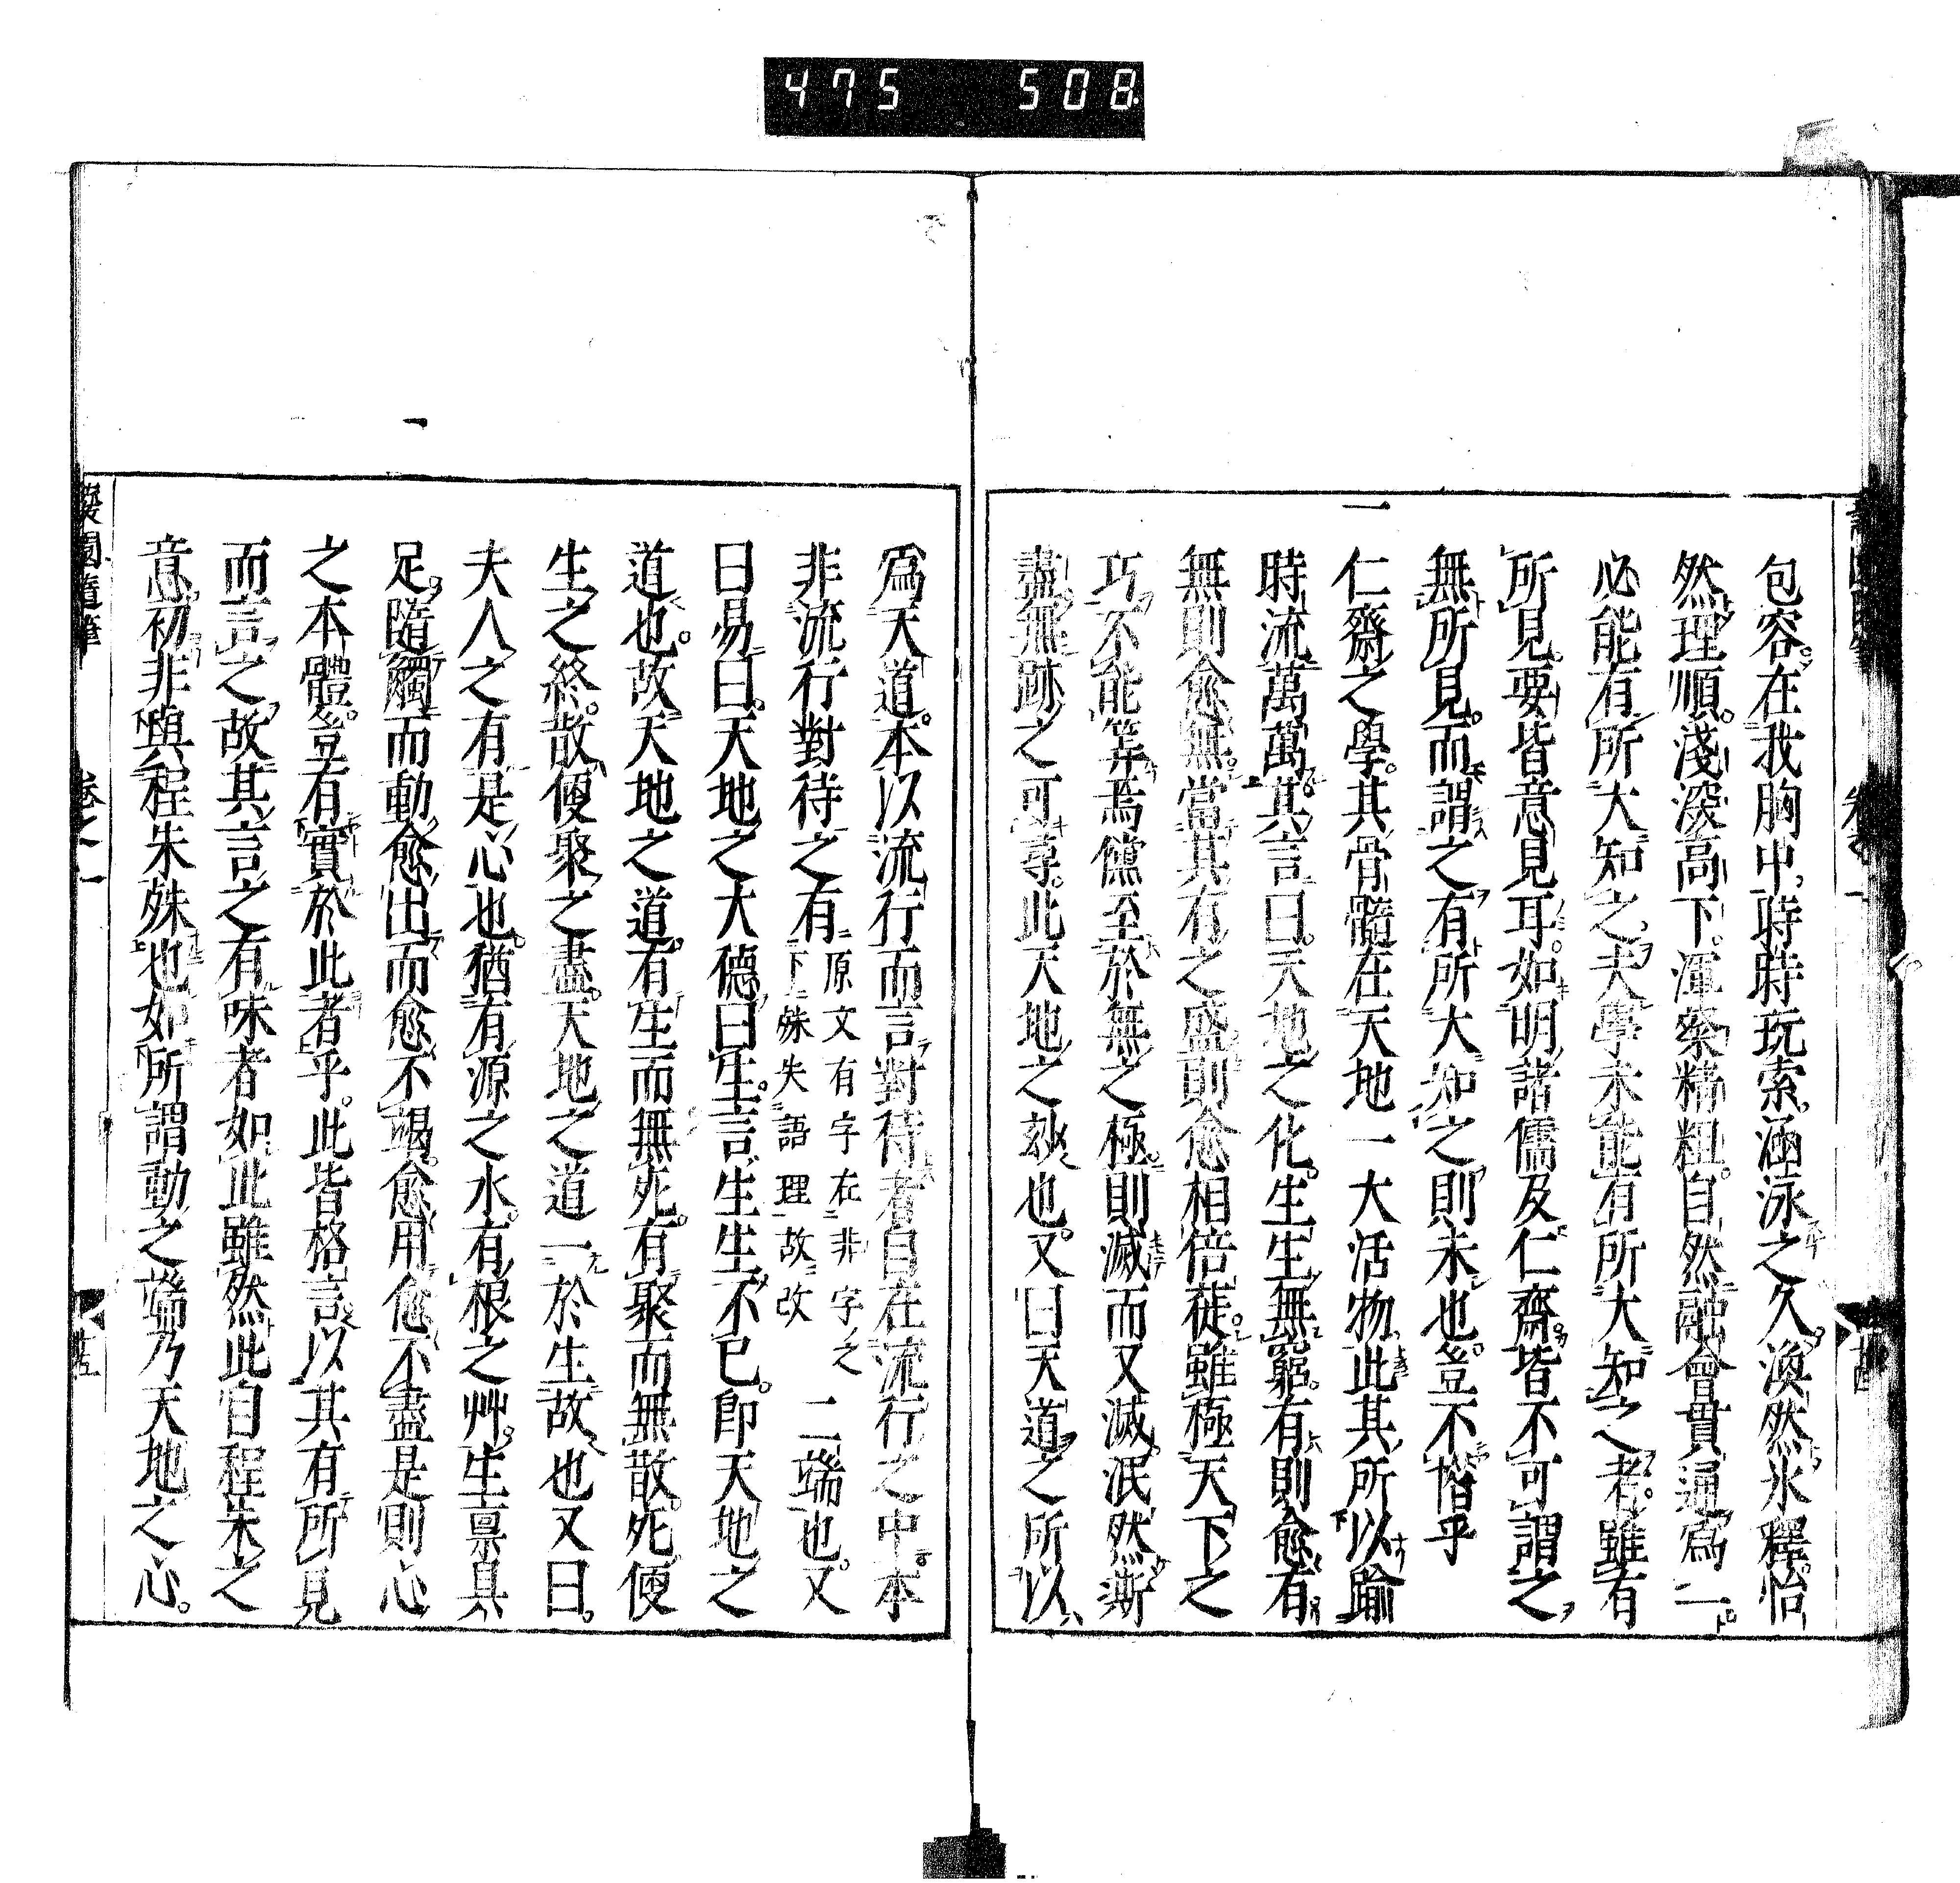 475 508
包容。在我胸中。時時玩索涵泳之久。渙然氷釋。怡
然理順。淺深高下。渾然精粗。自然融會貫通爲一。
必能有所大知之。夫學未能有所大知之者。雖有
所見。要皆意見耳。如明諸儒及仁齋。皆不可謂之
無所見。而謂之有所大知之則未也。豈不惜乎
一仁齋之學。其骨髓在天地一大活物。此其所以踰
時流萬萬。其言曰。天地之化。生生無窮。有則愈有。
無則愈無。當其有之盛。則愈相倍蓰。雖極天下之
巧。不能筭焉。儻至於無之極。則滅而又滅。泯然澌
盡。無跡之可尋。此天地之玅也。又曰天道之所以
爲天道。本以流行而言。對待者自在流行之中。本
非流行對待之有原文有字在非字之下殊失語理故改二端也。又
曰易曰。天地之大德曰生。言生生不已。即天地之
道也。故天地之道。有生而無死。有聚而無散。死便
生之終。散便聚之盡。天地之道一於生故也又曰。
夫人之有是心也。猶有源之水。有根之艸。生禀具
足。隨觸而動。愈出而愈不竭。愈用愈不盡。是則心
之本體。豈有實於此者乎。此皆格言。以其有所見
而言之。故其言之有味者如此。雖然此自程朱之
意。初非與程朱殊也。如所謂動之端乃天地之心。
蘐園隨筆 卷之一 十五